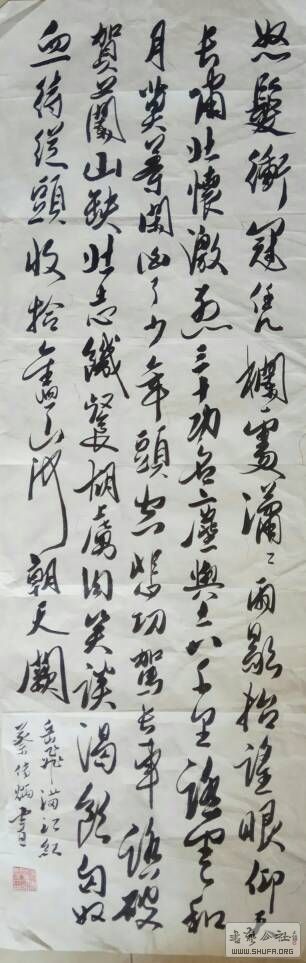 怒髮衝冠凭欄處瀟〻雨歇抬望眼仰天
長嘯壯懷激烈三十功名塵與土八千里路雲和
月莫等閑白了少年頭空悲切駕長車踏破
賀蘭山缺壯志飢餐胡虜肉笑談渴飲匈奴
血待從頭收拾舊山河朝天闕
岳飛滿江紅
蔡書
书艺公社
WWW.SHUFA.ORG